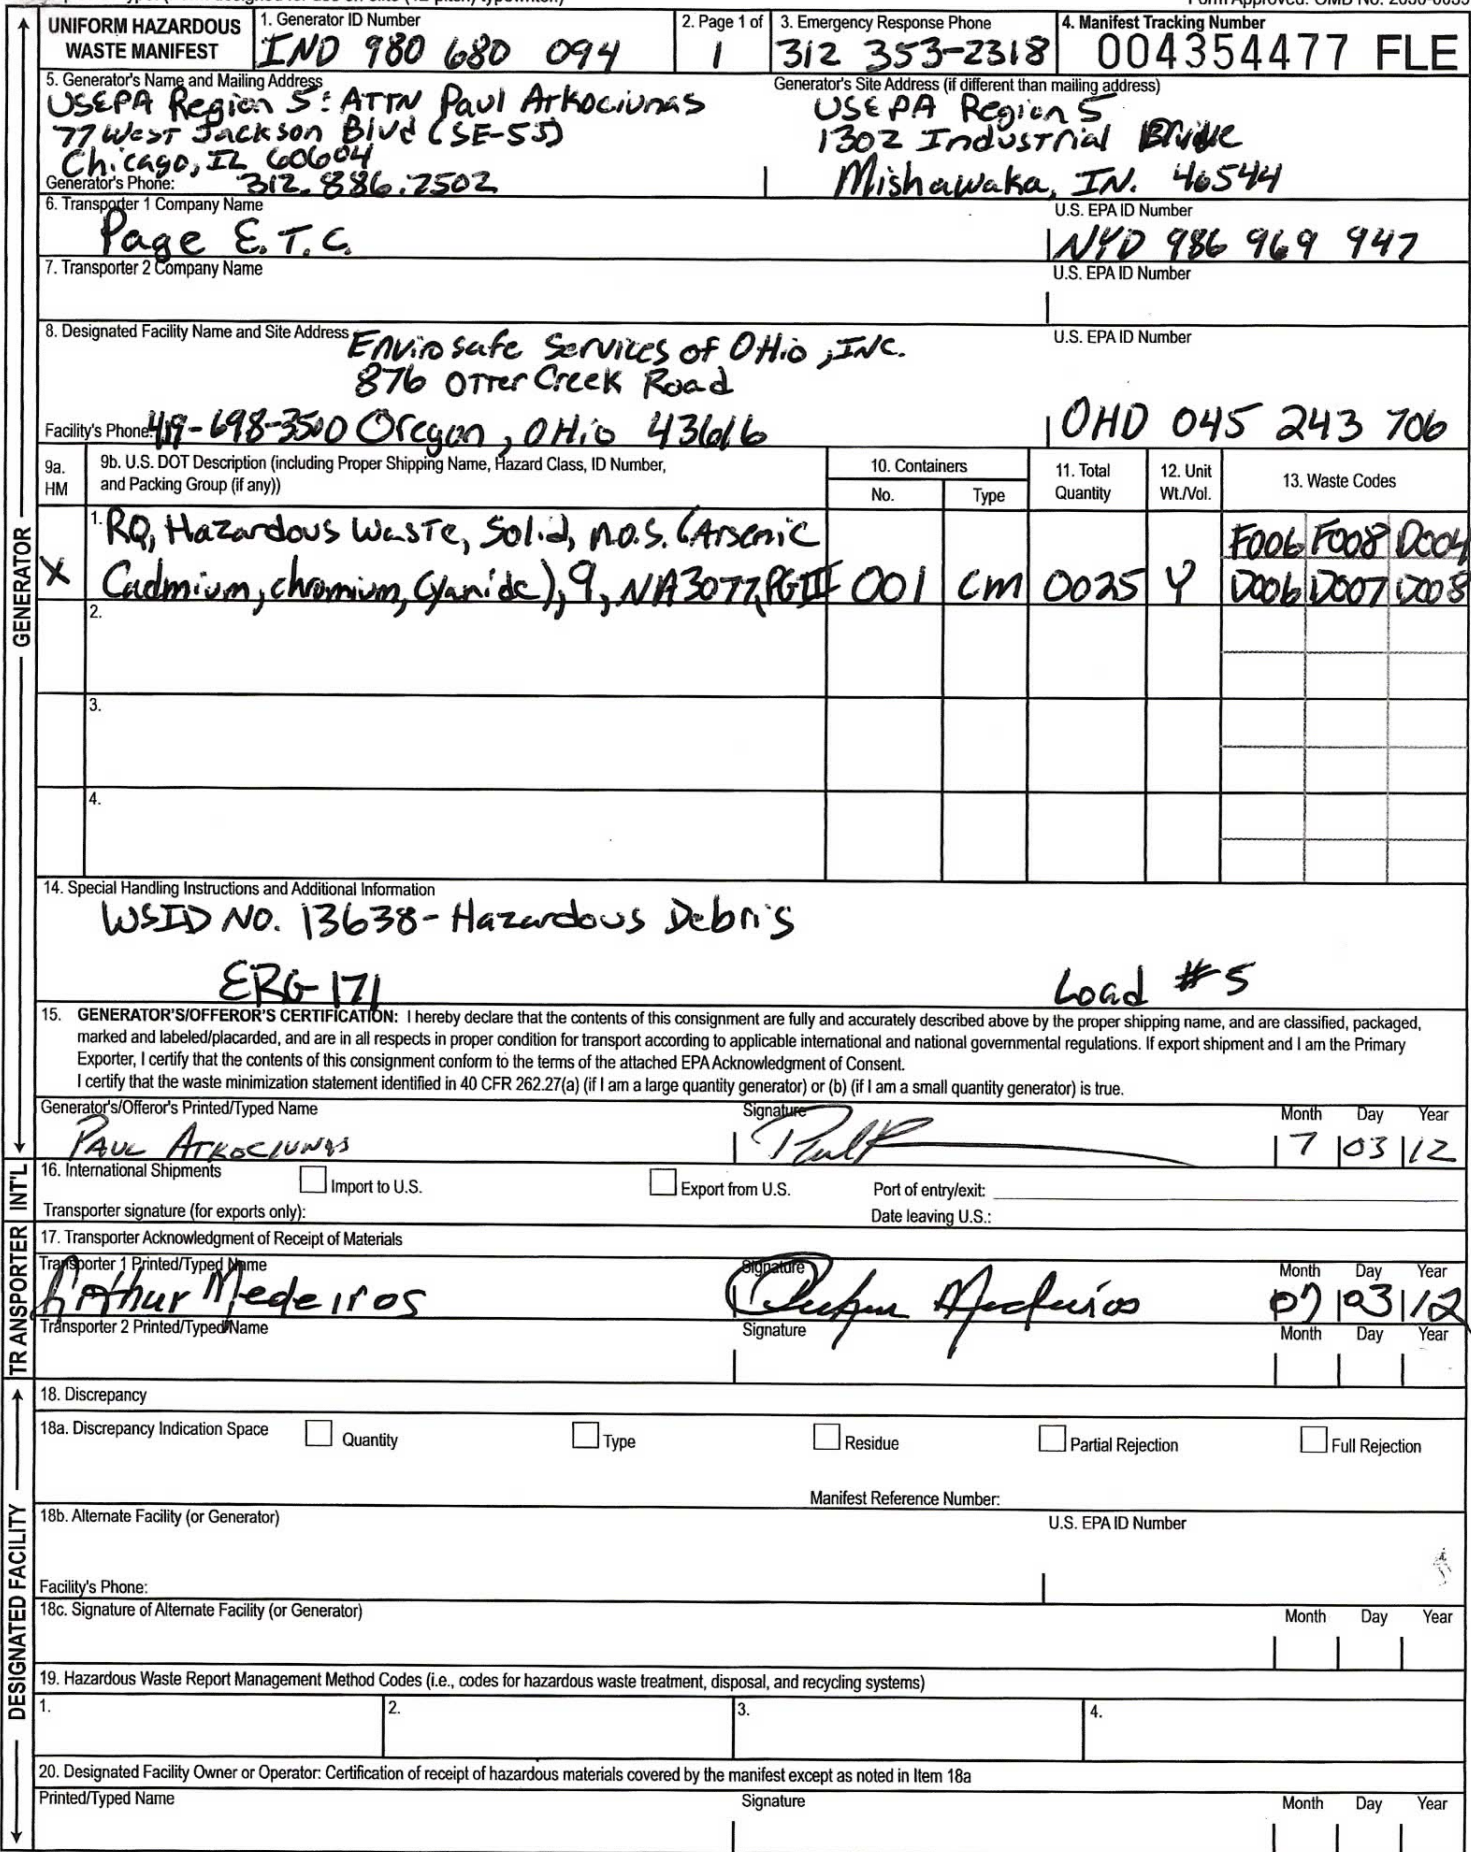 UNIFORM HAZARDOUS WASTE MANIFEST
1. Generator ID Number
IND 980 680 094
2. Page 1 of
1
3. Emergency Response Phone
312 353-2318
4. Manifest Tracking Number
004354477 FLE
5. Generator's Name and Mailing Address
USEPA Region 5: ATTN Paul Arkociunas
77 West Jackson Blvd (SE-5J)
Chicago, IL 60604
Generator's Phone: 312.886.7502
Generator's Site Address (if different than mailing address)
USEPA Region 5
1302 Industrial Drive
Mishawaka, IN. 46544
6. Transporter 1 Company Name
Page E.T.C.
U.S. EPA ID Number
NYD 986 969 947
7. Transporter 2 Company Name
U.S. EPA ID Number
8. Designated Facility Name and Site Address
Envirosafe Services of OHio, INC.
876 Otter Creek Road
Facility's Phone: 419-698-3500 Oregon, OHio 43616
U.S. EPA ID Number
OHD 045 243 706
9a. HM
9b. U.S. DOT Description (including Proper Shipping Name, Hazard Class, ID Number,
and Packing Group (if any))
10. Containers
No.
Type
11. Total Quantity
12. Unit Wt./Vol.
13. Waste Codes
X
1. RQ, Hazardous Waste, Solid, n.o.s. (Arsenic
Cadmium, chromium, Cyanide), 9, NA3077, PGIII
001
CM
0025
Y
F006 F008 D004
D006 D007 D008
2.
3.
4.
14. Special Handling Instructions and Additional Information
WSID NO. 13638 - Hazardous Debris
ERG-171
Load #5
15. GENERATOR'S/OFFEROR'S CERTIFICATION: I hereby declare that the contents of this consignment are fully and accurately described above by the proper shipping name, and are classified, packaged,
marked and labeled/placarded, and are in all respects in proper condition for transport according to applicable international and national governmental regulations. If export shipment and I am the Primary
Exporter, I certify that the contents of this consignment conform to the terms of the attached EPA Acknowledgment of Consent.
I certify that the waste minimization statement identified in 40 CFR 262.27(a) (if I am a large quantity generator) or (b) (if I am a small quantity generator) is true.
Generator's/Offeror's Printed/Typed Name
PAUL ATKOCIUNAS
Signature
Month Day Year
7 03 12
16. International Shipments
Import to U.S.
Export from U.S.
Port of entry/exit:
Transporter signature (for exports only):
Date leaving U.S.:
17. Transporter Acknowledgment of Receipt of Materials
Transporter 1 Printed/Typed Name
Arthur Medeiros
Signature
Arthur Medeiros
Month Day Year
07 03 12
Transporter 2 Printed/Typed Name
Signature
Month Day Year
18. Discrepancy
18a. Discrepancy Indication Space
Quantity
Type
Residue
Partial Rejection
Full Rejection
Manifest Reference Number:
18b. Alternate Facility (or Generator)
U.S. EPA ID Number
Facility's Phone:
18c. Signature of Alternate Facility (or Generator)
Month Day Year
19. Hazardous Waste Report Management Method Codes (i.e., codes for hazardous waste treatment, disposal, and recycling systems)
1.
2.
3.
4.
20. Designated Facility Owner or Operator: Certification of receipt of hazardous materials covered by the manifest except as noted in Item 18a
Printed/Typed Name
Signature
Month Day Year
GENERATOR
INT'L
TRANSPORTER
DESIGNATED FACILITY